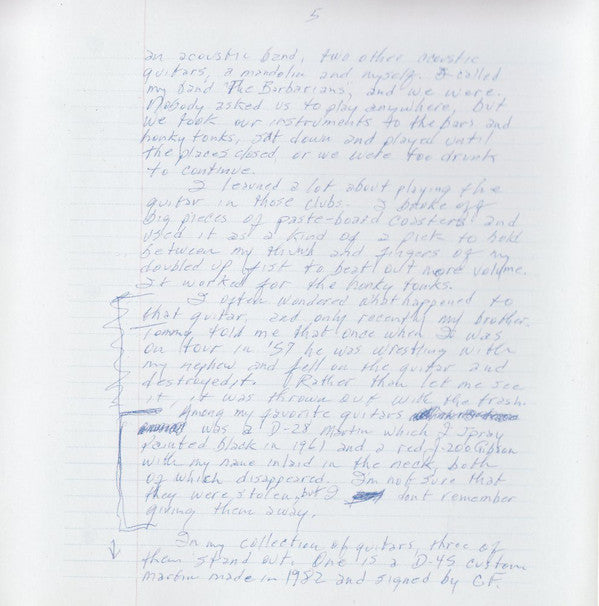 5
an acoustic band, two other acoustic
guitars, a mandolin and myself. I called
my band The Barbarians, and we were.
Nobody asked us to play anywhere, but
we took our instruments to the bars and
honky tonks, sat down and played until
the places closed, or we were too drunk
to continue.
I learned a lot about playing the
guitar in those clubs. I broke off
big pieces of paste-board coasters and
used it as a kind of a pick to hold
between my thumb and fingers of my
doubled up fist to beat out more volume.
It worked for the honky tonks.
I often wondered what happened to
that guitar, and only recently my brother,
Tommy, told me that once when I was
on tour in '57 he was wrestling with
my nephew and fell on the guitar and
destroyed it. Rather than let me see
it, it was thrown out with the trash.
Among my favorite guitars
was a D-28 Martin which I spray
painted black in 1961 and a red J-200 Gibson
with my name inlaid in the neck, both
of which disappeared. I'm not sure that
they were stolen, but I dont remember
giving them away.
In my collection of guitars, three of
them stand out. One is a D-45 custom
Martin made in 1982 and signed by C.F.